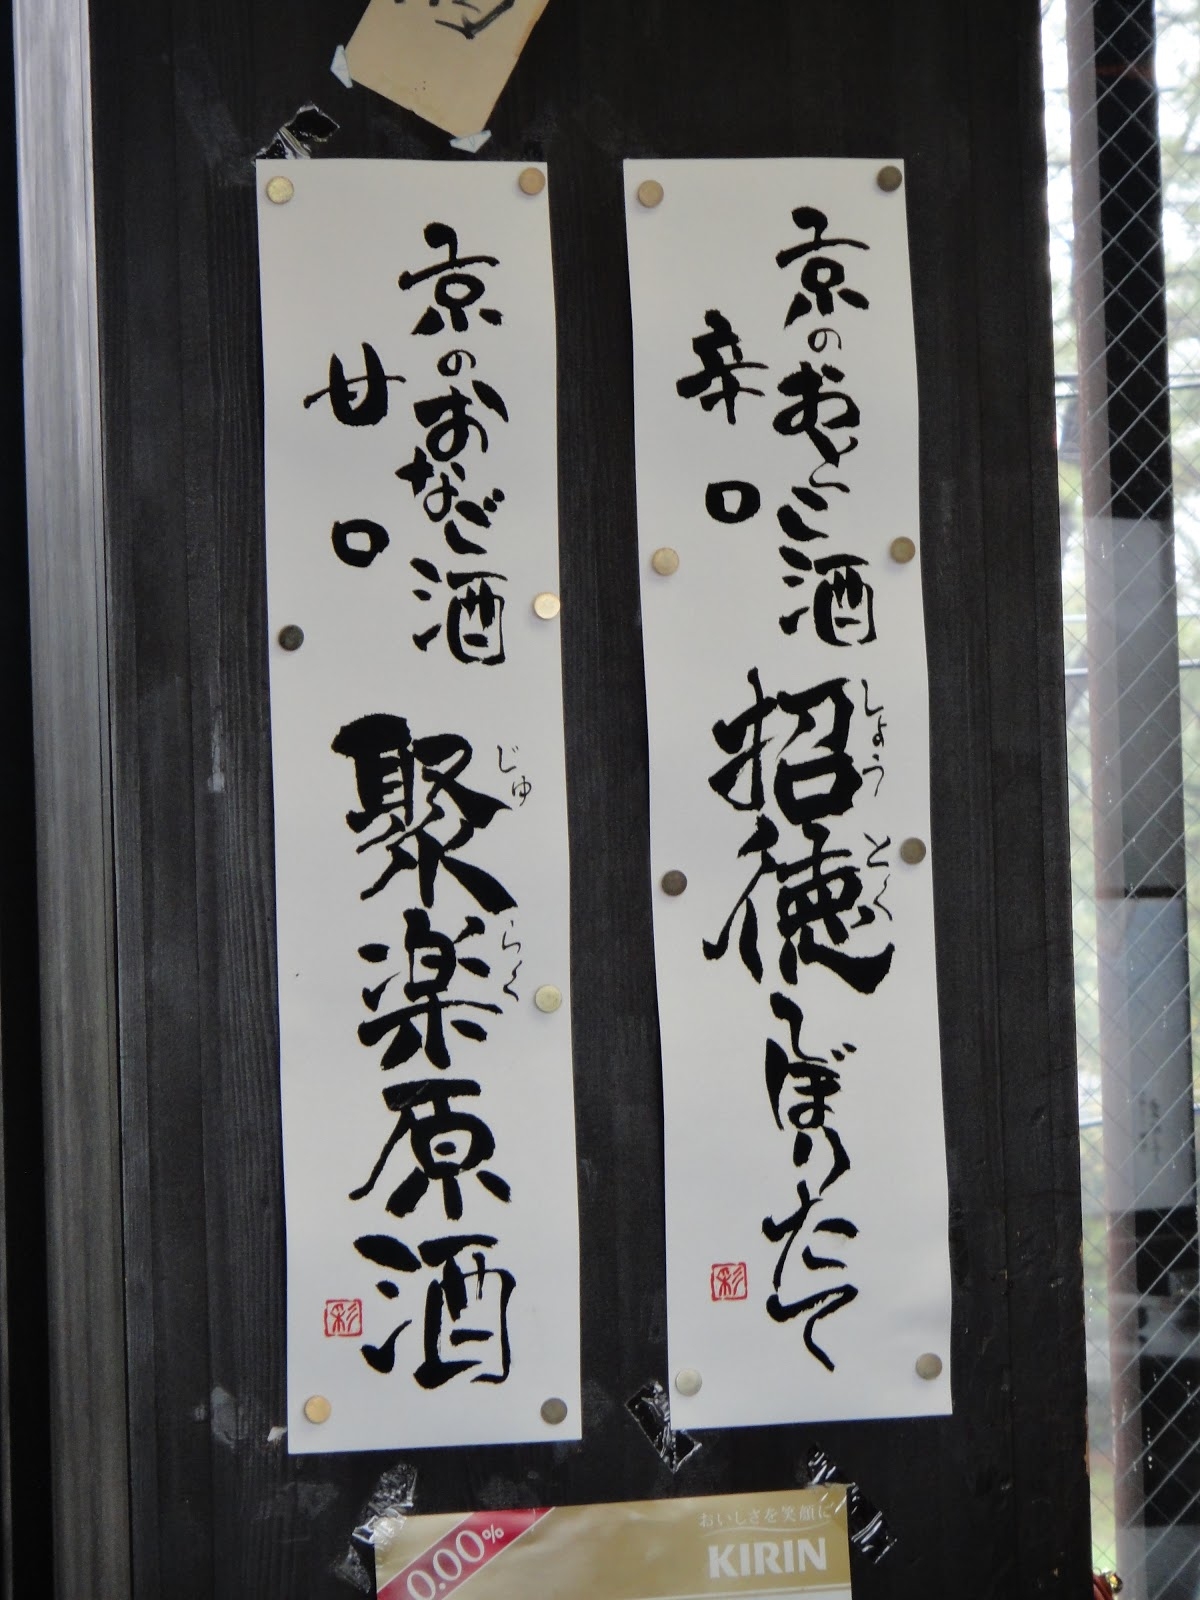 京のおとこ酒
辛口
招徳しぼりたて
しょうとく
彩
京のおなご酒
甘口
聚楽原酒
じゅらく
彩
0.00%
おいしさを笑顔に
KIRIN